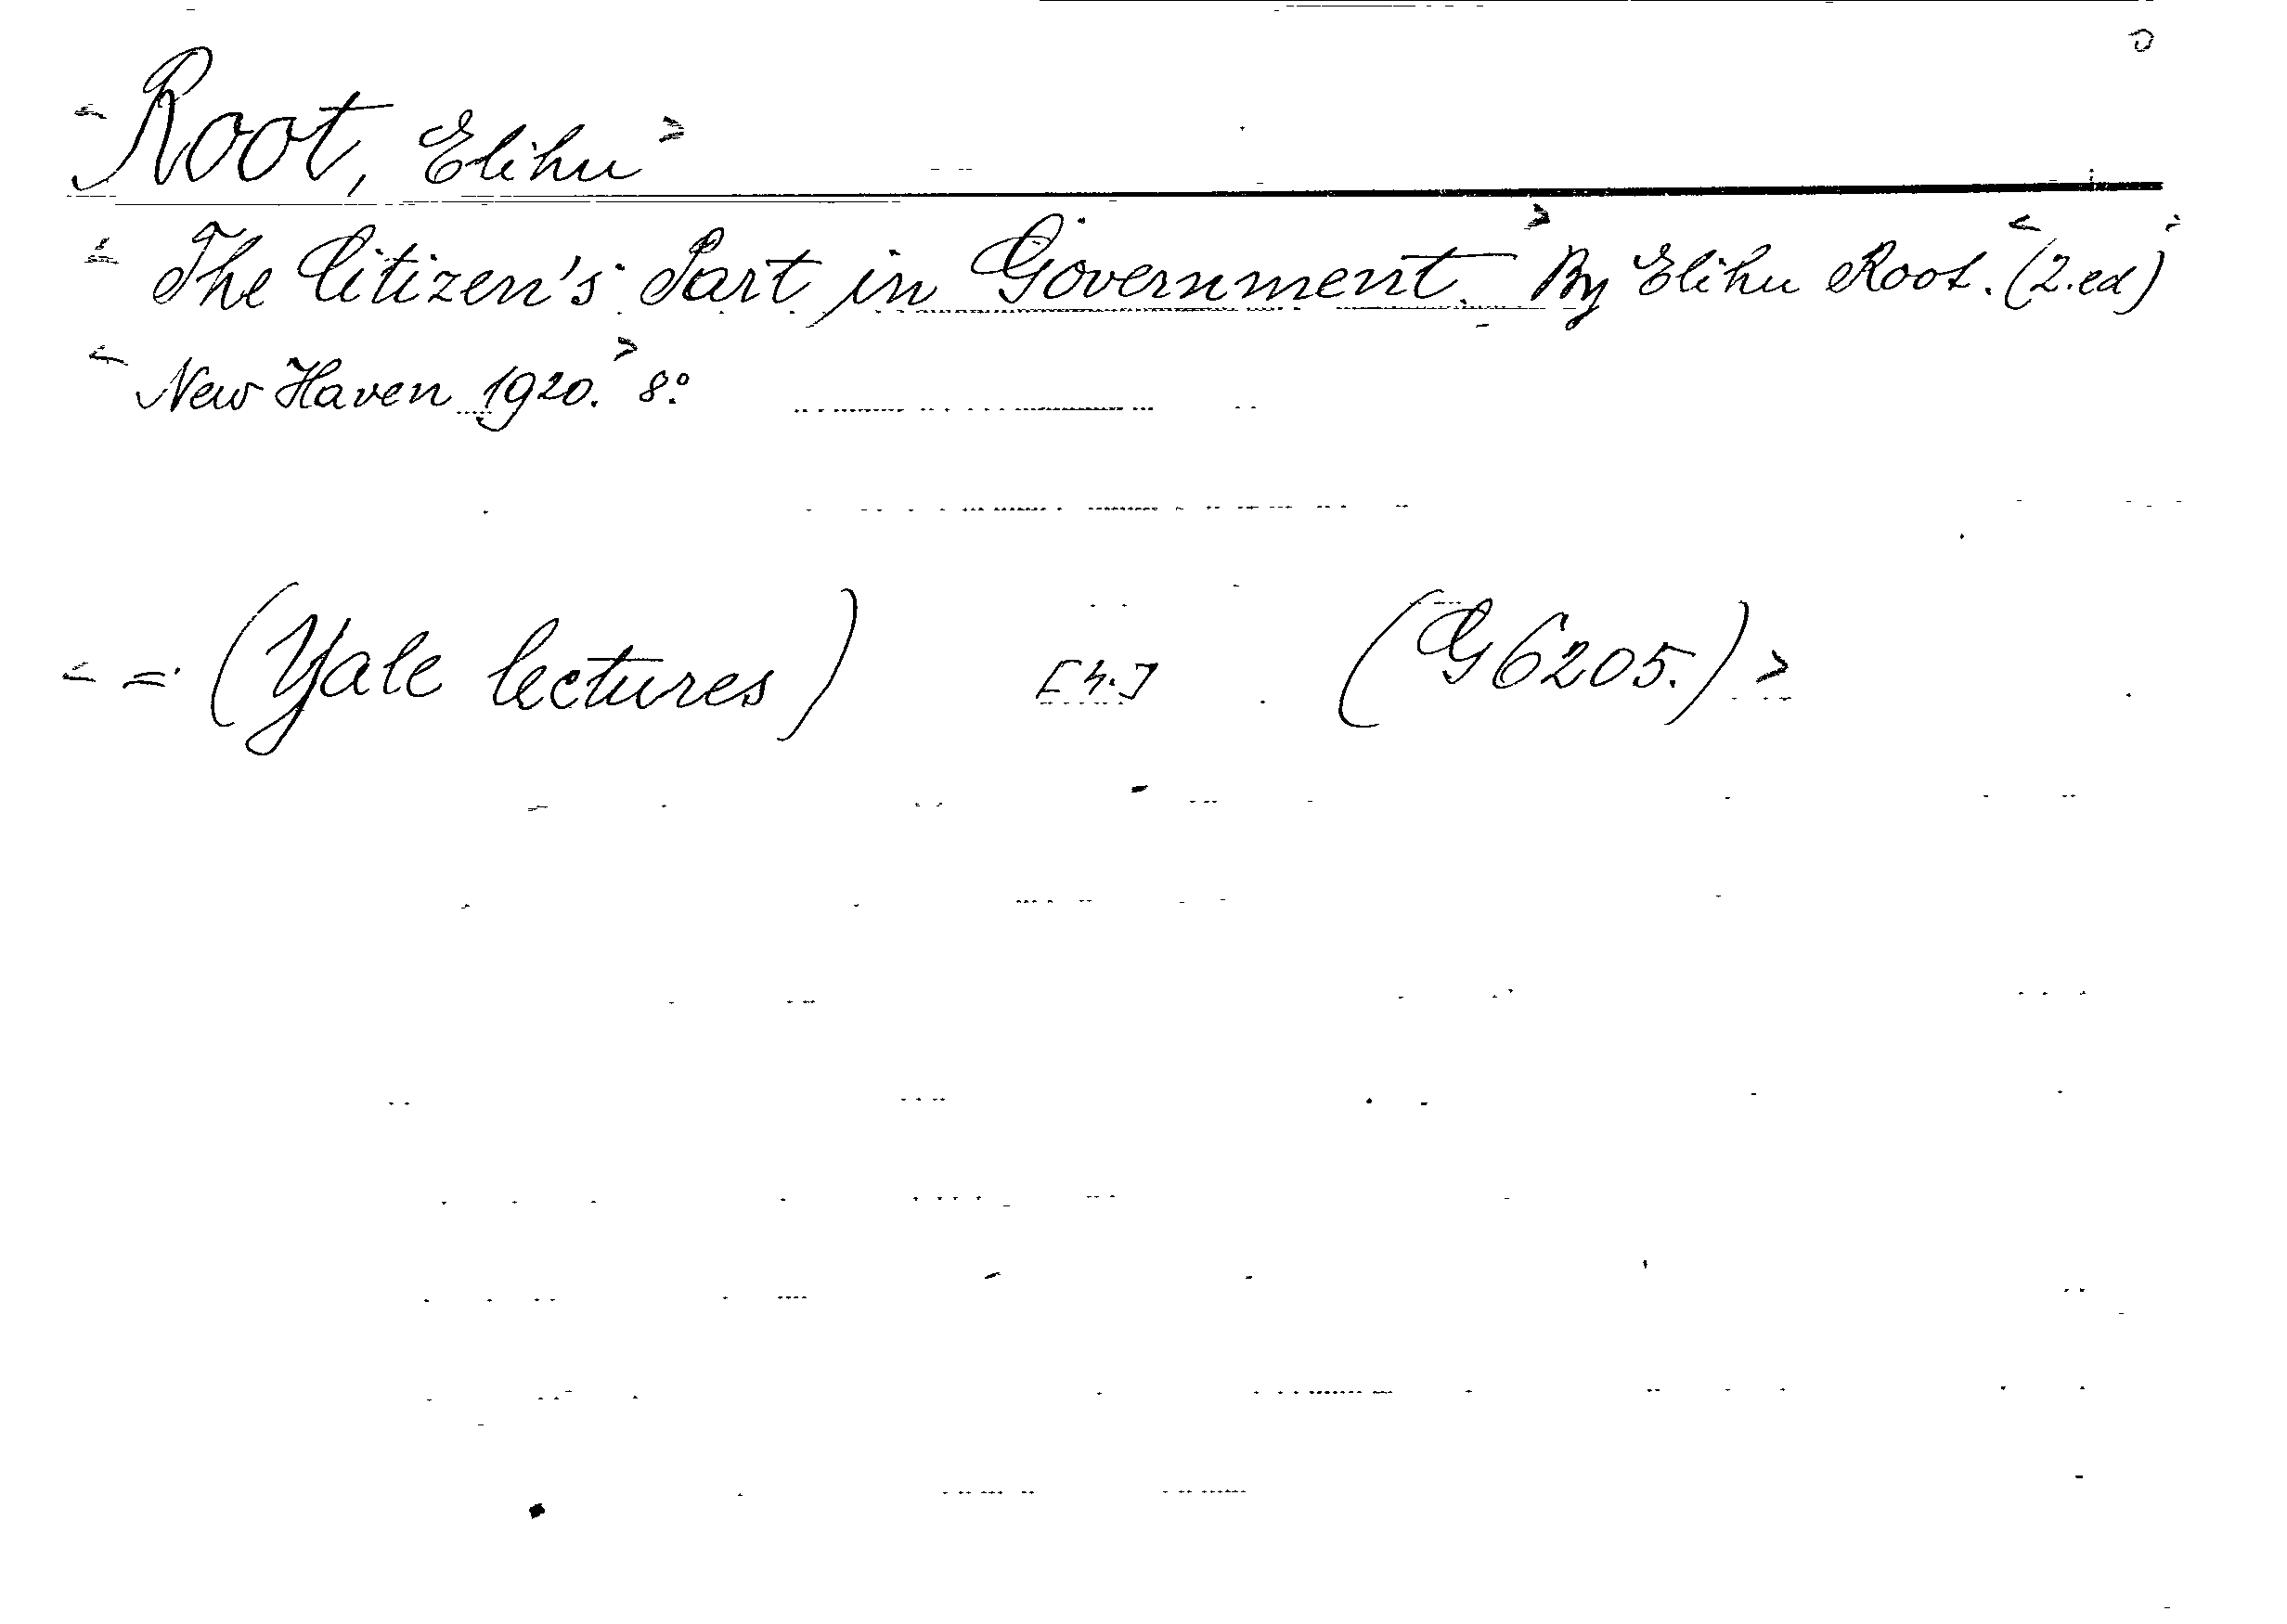 <Root, Elihu>
<The Citizen's Part in Government.> By Elihu Root. <(2. ed)>
<New Haven 1920.> 8º.
<= (Yale lectures) [4.] (G 6205.)>